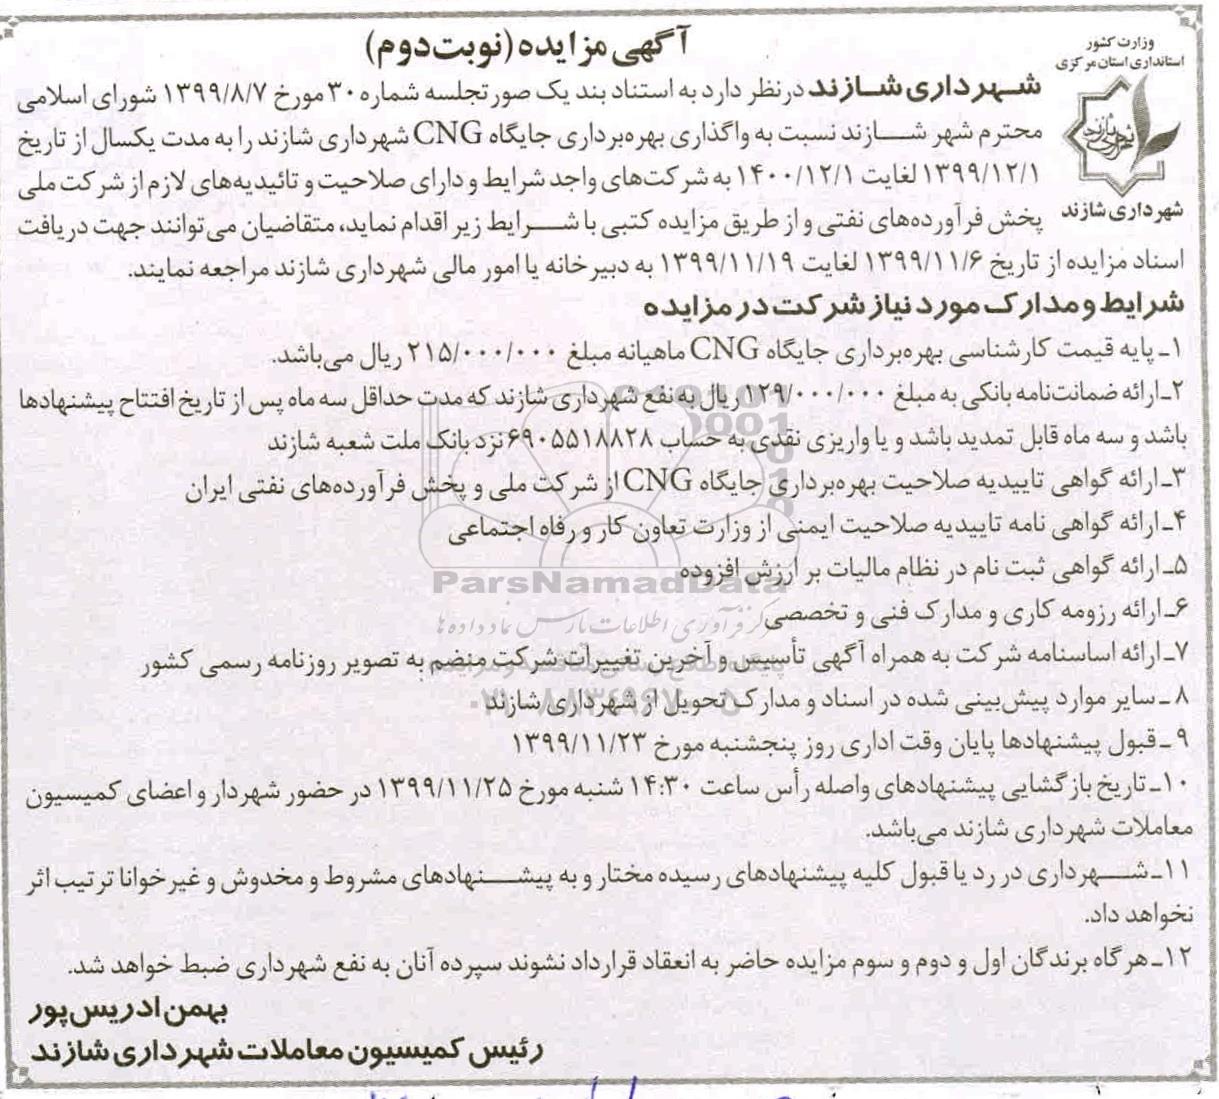 آگهی مزایده (نوبت دوم)
وزارت کشور
استانداری استان مرکزی
شهرداری شازند
شهرداری شازند درنظر دارد به استناد بند یک صورتجلسه شماره ۳۰ مورخ ۱۳۹۹/۸/۷ شورای اسلامی
محترم شهر شازند نسبت به واگذاری بهره‌برداری جایگاه CNG شهرداری شازند را به مدت یکسال از تاریخ
۱۳۹۹/۱۲/۱ لغایت ۱۴۰۰/۱۲/۱ به شرکت‌های واجد شرایط و دارای صلاحیت و تائیدیه‌های لازم از شرکت ملی
پخش فرآورده‌های نفتی و از طریق مزایده کتبی با شرایط زیر اقدام نماید، متقاضیان می‌توانند جهت دریافت
اسناد مزایده از تاریخ ۱۳۹۹/۱۱/۶ لغایت ۱۳۹۹/۱۱/۱۹ به دبیرخانه یا امور مالی شهرداری شازند مراجعه نمایند.
شرایط و مدارک مورد نیاز شرکت در مزایده
۱ـ پایه قیمت کارشناسی بهره‌برداری جایگاه CNG ماهیانه مبلغ ۲۱۵/۰۰۰/۰۰۰ ریال می‌باشد.
۲ـ ارائه ضمانت‌نامه بانکی به مبلغ ۱۲۹/۰۰۰/۰۰۰ ریال به نفع شهرداری شازند که مدت حداقل سه ماه پس از تاریخ افتتاح پیشنهادها
باشد و سه ماه قابل تمدید باشد و یا واریزی نقدی به حساب ۶۹۰۵۵۱۸۸۲۸ نزد بانک ملت شعبه شازند
۳ـ ارائه گواهی تاییدیه صلاحیت بهره‌برداری جایگاه CNG از شرکت ملی و پخش فرآورده‌های نفتی ایران
۴ـ ارائه گواهی نامه تاییدیه صلاحیت ایمنی از وزارت تعاون کار و رفاه اجتماعی
۵ـ ارائه گواهی ثبت نام در نظام مالیات بر ارزش افزوده
ParsNamadData
۶ـ ارائه رزومه کاری و مدارک فنی و تخصصی
مرکز فرآوری اطلاعات پارس نماد داده‌ها
۷ـ ارائه اساسنامه شرکت به همراه آگهی تأسیس و آخرین تغییرات شرکت منضم به تصویر روزنامه رسمی کشور
۸ ـ سایر موارد پیش‌بینی شده در اسناد و مدارک تحویل از شهرداری شازند
۹ ـ قبول پیشنهادها پایان وقت اداری روز پنجشنبه مورخ ۱۳۹۹/۱۱/۲۳
۱۰ـ تاریخ بازگشایی پیشنهادهای واصله رأس ساعت ۱۴:۳۰ شنبه مورخ ۱۳۹۹/۱۱/۲۵ در حضور شهردار و اعضای کمیسیون
معاملات شهرداری شازند می‌باشد.
۱۱ـ شهرداری در رد یا قبول کلیه پیشنهادهای رسیده مختار و به پیشنهادهای مشروط و مخدوش و غیرخوانا ترتیب اثر
نخواهد داد.
۱۲ـ هرگاه برندگان اول و دوم و سوم مزایده حاضر به انعقاد قرارداد نشوند سپرده آنان به نفع شهرداری ضبط خواهد شد.
بهمن ادریس‌پور
رئیس کمیسیون معاملات شهرداری شازند